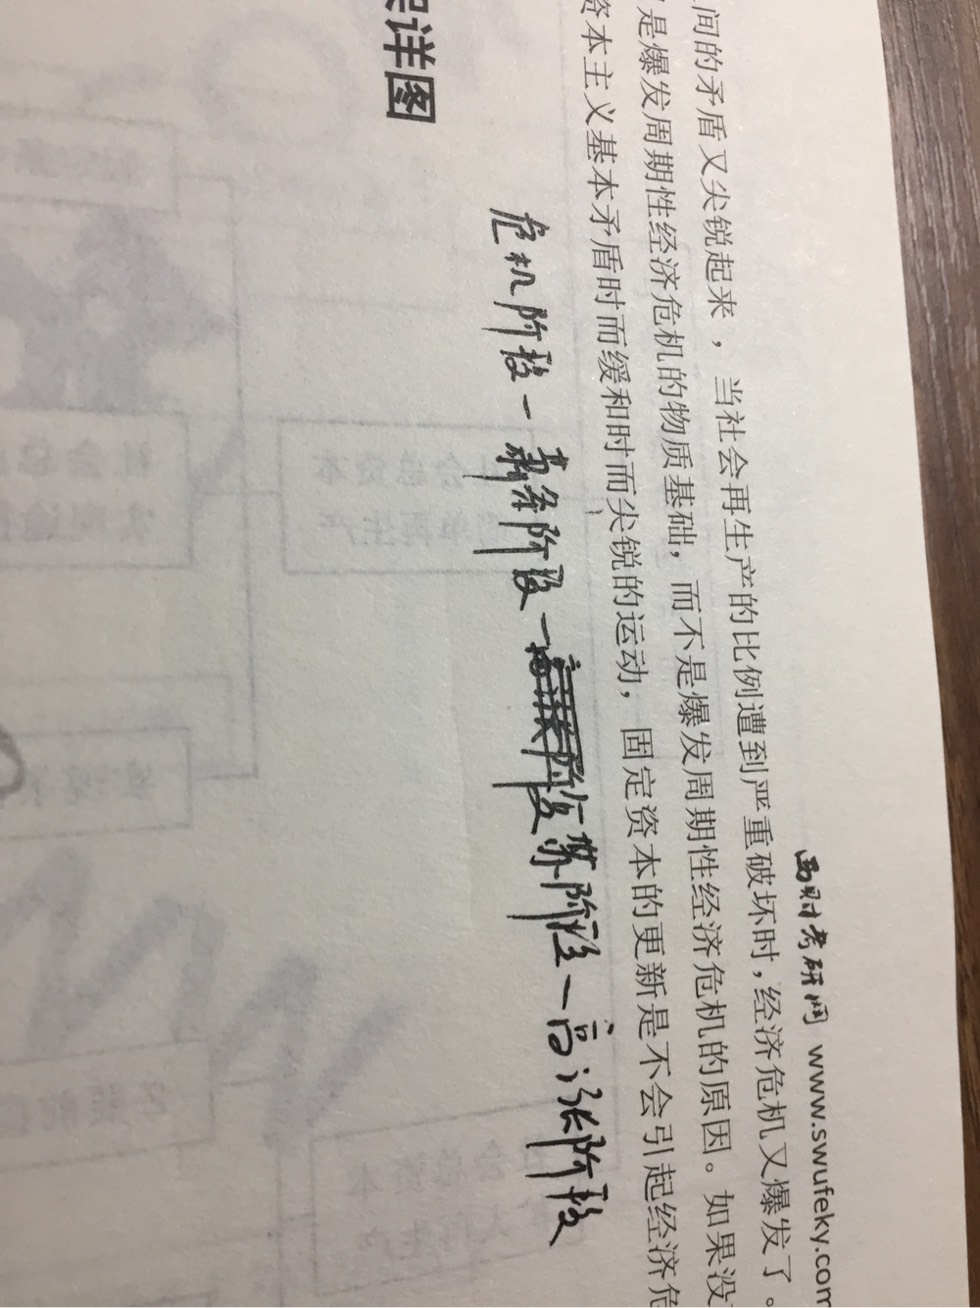 西财考研网 www.swufeky.com
间的矛盾又尖锐起来，当社会再生产的比例遭到严重破坏时，经济危机又爆发了。
是爆发周期性经济危机的物质基础，而不是爆发周期性经济危机的原因。如果没
资本主义基本矛盾时而缓和时而尖锐的运动，固定资本的更新是不会引起经济危
危机阶段—萧条阶段—复苏阶段—高涨阶段
详图